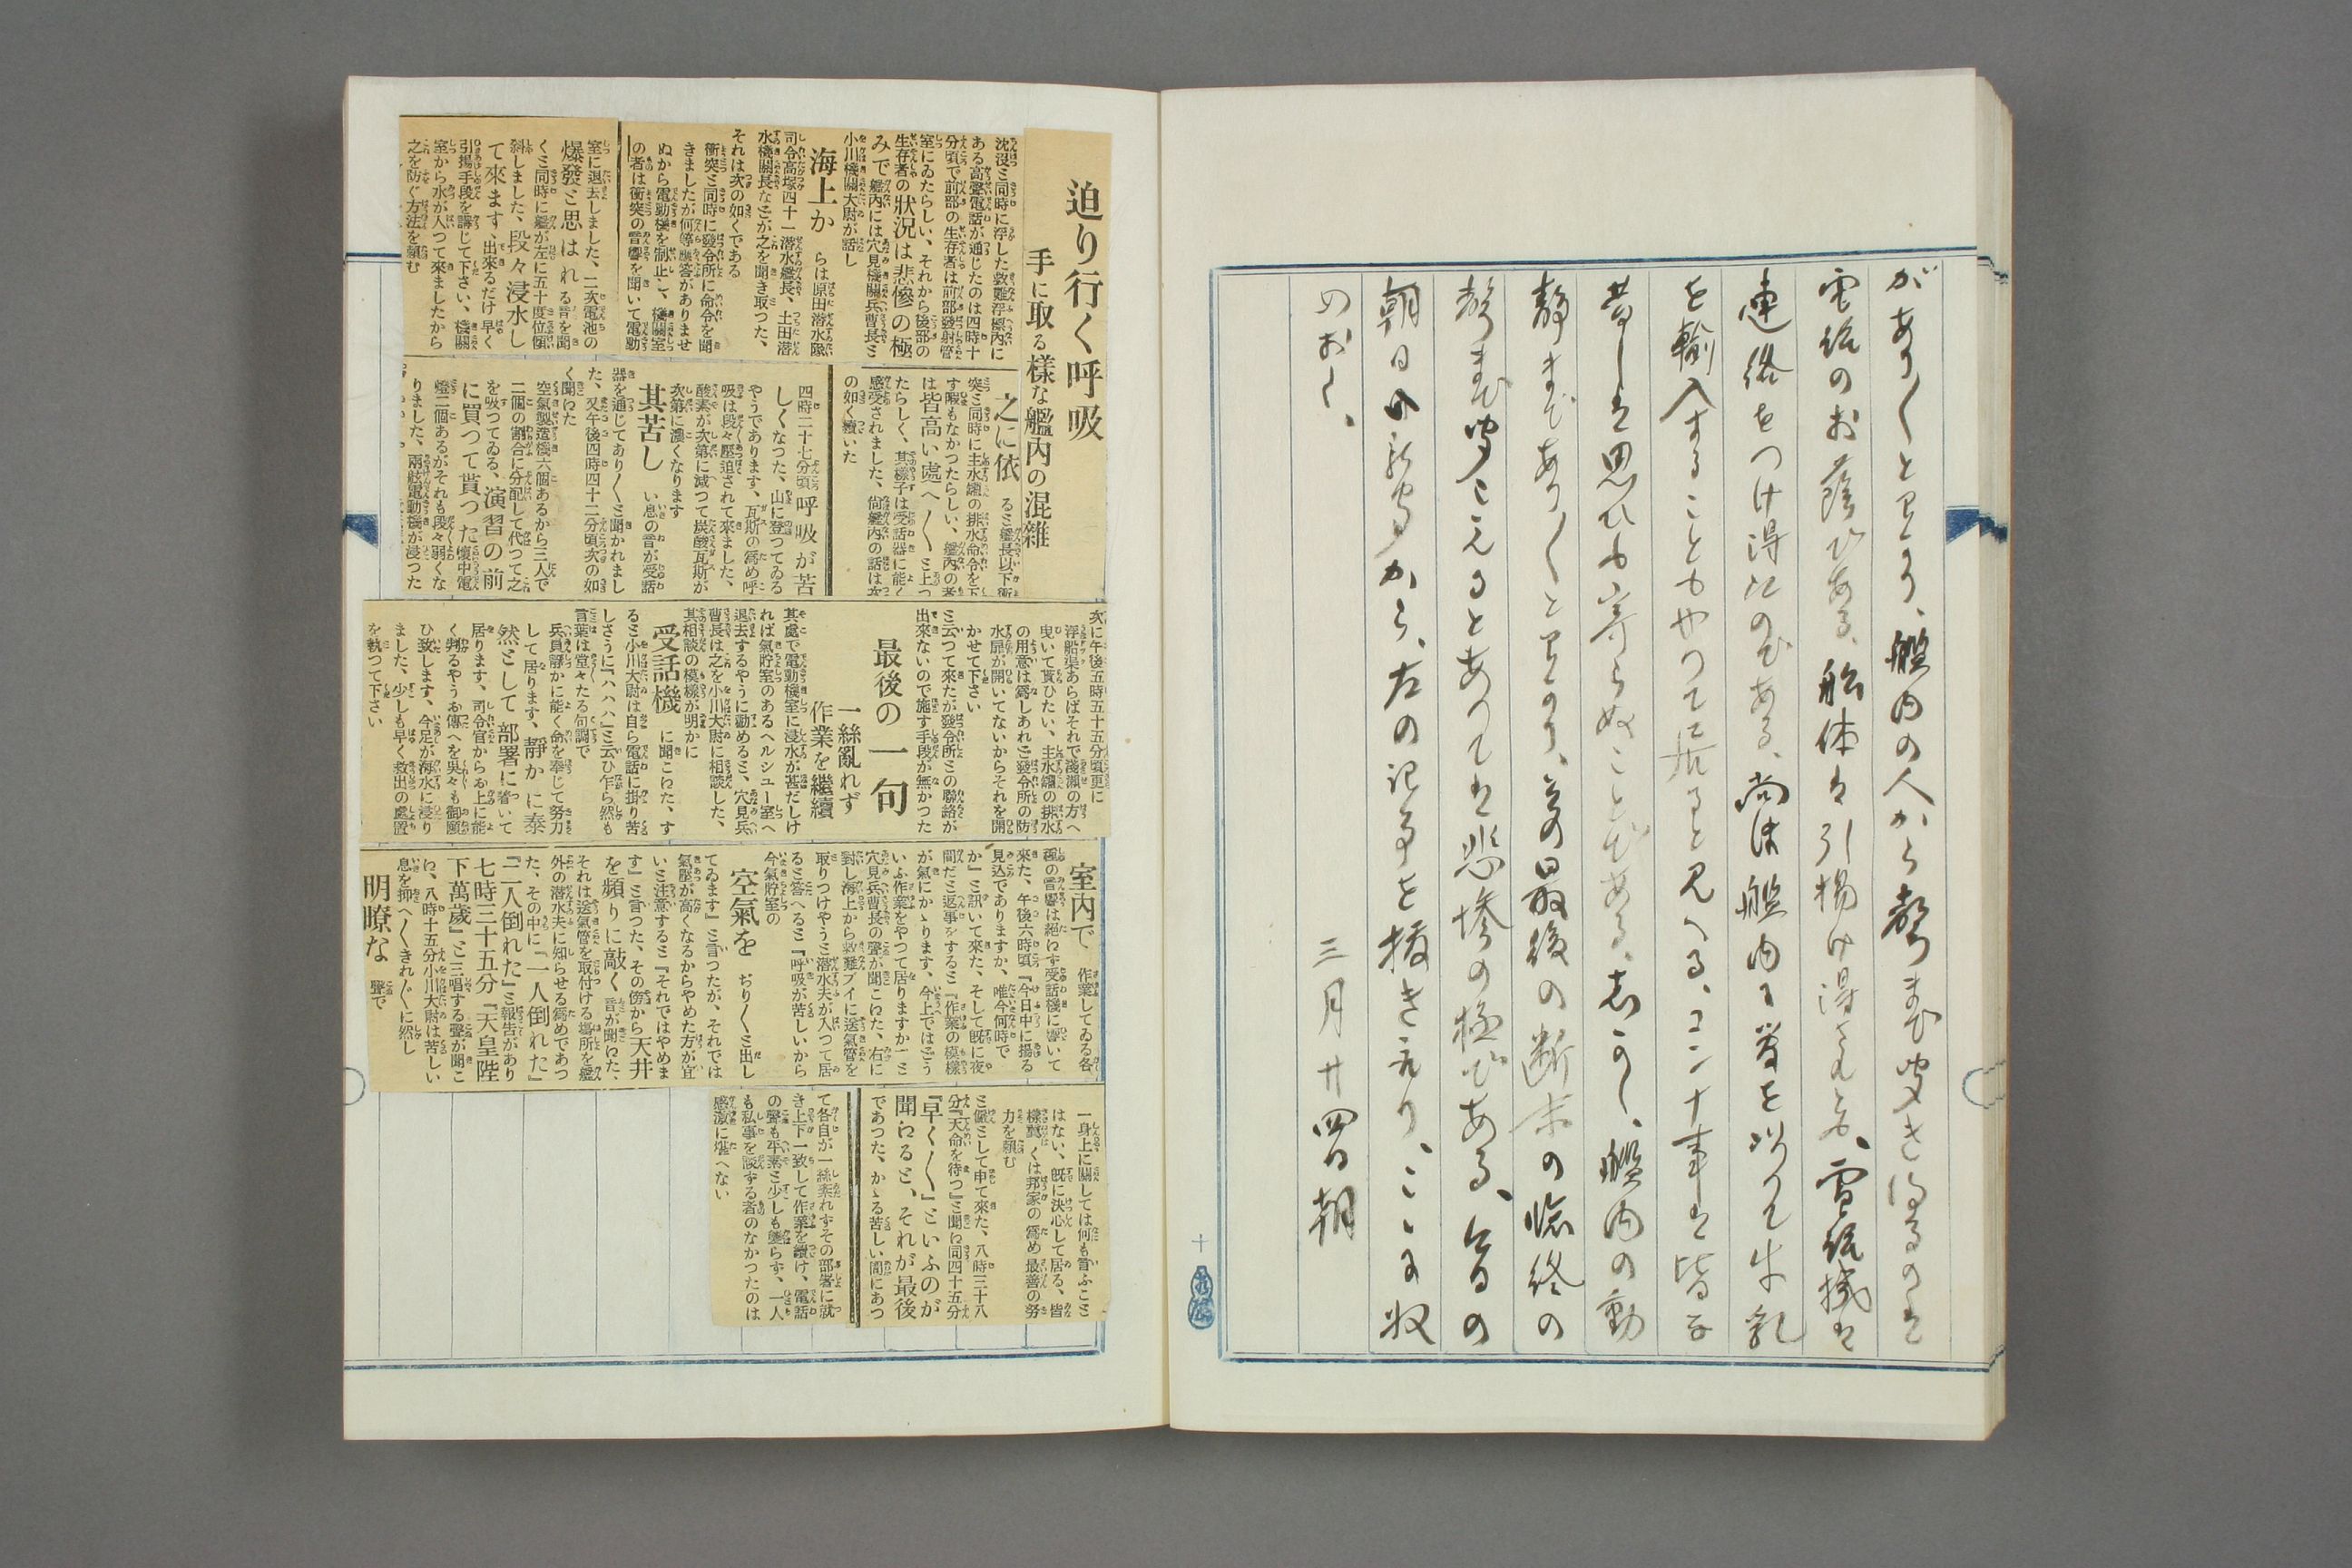 があり〳〵とわかり、艦内の人から声まで聞き得るのは
電話のお蔭である、船体は引揚け得ざるも、電話機は
連絡をつけ得たのである、尚ほ艦内に管を以つて牛乳
を輸入することもやつて居ると見へる、コンナ事は皆な
昔しは思ひも寄らぬことである、しかし、艦内の動
静まであり〳〵とわかり、其の最後の断末の臨終の
声まで聞こえるとあつては悲惨の極である、今日の
朝日の新聞から、左の記事を抜き取り、ここに収
めおく、
三月廿四日朝
迫り行く呼吸
手に取る樣な艦內の混雜
沈沒と同時に浮した救難浮標內に
ある高聲電話が通じたのは四時十
分頃で前部の生存者は前部發射管
室にゐたらしい、それから後部の
生存者の狀況は悲慘の極
みで艦內には穴見機關兵曹長と
小川機關大尉が話し
海上か らは原田潛水隊
司令高塚四十一潛水艦長、土田潛
水機關長などが之を聞き取つた、
それは次の如くである
衝突と同時に發令所に命令を聞
きましたが何等應答がありませ
ぬから電動機を制止し、機關室
の者は衝突の音響を聞いて電動
室に退去しました、二次電池の
爆發と思はれる音を聞
くと同時に艦が左に五十度位傾
斜しました、段々浸水し
て來ます、出來るだけ早く
引揚手段を講じて下さい、機關
室から水が入つて來ましたから
之を防ぐ方法を賴む
之に依 ると艦長以下衝
突と同時に主水罐の排水命令を下
す暇もなかつたらしい、艦內の者
は皆高い處へ〳〵と上つ
たらしく、其樣子は受話器に能く
感受されました、尙艦內の話は次
の如く續いた
四時二十七分頃呼吸が苦
しくなつた、山に登つてゐる
やうであります、瓦斯の爲め呼
吸は段々壓迫されて來ました、
酸素が次第に減つて炭酸瓦斯が
次第に濃くなります
其苦し い息の音が受話
器を通じてあり〳〵と聞かれまし
た、又午後四時四十二分頃次の如
く聞えた
空氣製造機六個あるから三人で
二個の割合に分配して代つて之
を吸つてゐる、演習の前
に買つて貰つた懷中電
燈二個あるがそれも段々弱くな
りました、兩舷電動機が浸つた
次に午後五時五十五分頃更に
浮船渠あらばそれで淺瀨の方へ
曳いて貰ひたい、主水罐の排水
の用意は爲しあれど發令所の防
水扉が開いてないからそれを開
かせて下さい
と云つて來たが發令所との聯絡が
出來ないので施す手段が無かつた
最後の一句
一絲亂れず
作業を繼續
其處で電動機室に浸水が甚だしけ
れば氣貯室のあるヘルシユー室へ
退去するやうに勸めると、穴見兵
曹長は之を小川大尉に相談した、
其相談の模樣が明かに
受話機 に聞こえた、す
ると小川大尉は自ら電話に掛り苦
しさうに『ハハハ』と云ひ乍ら然も
言葉は堂々たる句調で
兵員靜かに能く命を奉じて努力
して居ります、靜かに泰
然として部署に着いて
居ります、司令官からお上に能
く判るやうお傳へを吳々も御願
ひ致します、今足が海水に浸り
ました、少しも早く救出の處置
を執つて下さい
室內で 作業してゐる各
種の音響は絕えず受話機に響いて
來た、午後六時頃『今日中に揚る
見込でありますか、唯今何時で
か』と訊いて來た、そして既に夜
間だと返事をすると『作業の模樣
が氣にかゝります、今上ではどう
いふ作業をやつて居りますか』と
穴見兵曹長の聲が聞こえた、右に
對し海上から救難ブイに送氣管を
取りつけやうと潛水夫が入つて居
ると答へると『呼吸が苦しいから
今氣貯室の
空氣を ぢり〳〵と出し
てゐます』と言つたが、それでは
氣壓が高くなるからやめた方が宜
いと注意すると『それではやめま
す』と言つた、その傍から天井
を頻りに敲く音が聞えた、
それは送氣管を取付ける場所を艦
外の潛水夫に知らせる爲めであつ
た、その中に『一人倒れた』
『二人倒れた』と報告があり
七時三十五分『天皇陛
下萬歲』と三唱する聲が聞こ
え、八時十五分小川大尉は苦しい
息を抑へ〳〵きれ〴〵に然し
明瞭な 聲で
一身上に關しては何も言ふこと
はない、既に決心して居る、皆
樣冀くは邦家の爲め最善の努
力を賴む
と儼として申て來た、八時三十八
分『天命を待つ』と聞え同四十五分
『早く〳〵』といふのが
聞えると、それが最後
であつた、かゝる苦しい間にあつ
て各自が一絲紊れずその部署に就
き上下一致して作業を續け、電話
の聲も平素と少しも變らず、一人
も私事を談ずる者のなかつたのは
感激に堪へない
十